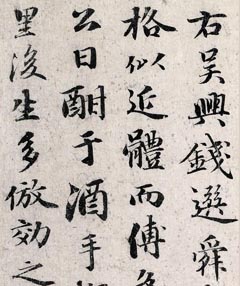 右吳興錢選舜
格似近體而傅
公日酣于酒手
里後生多倣効之